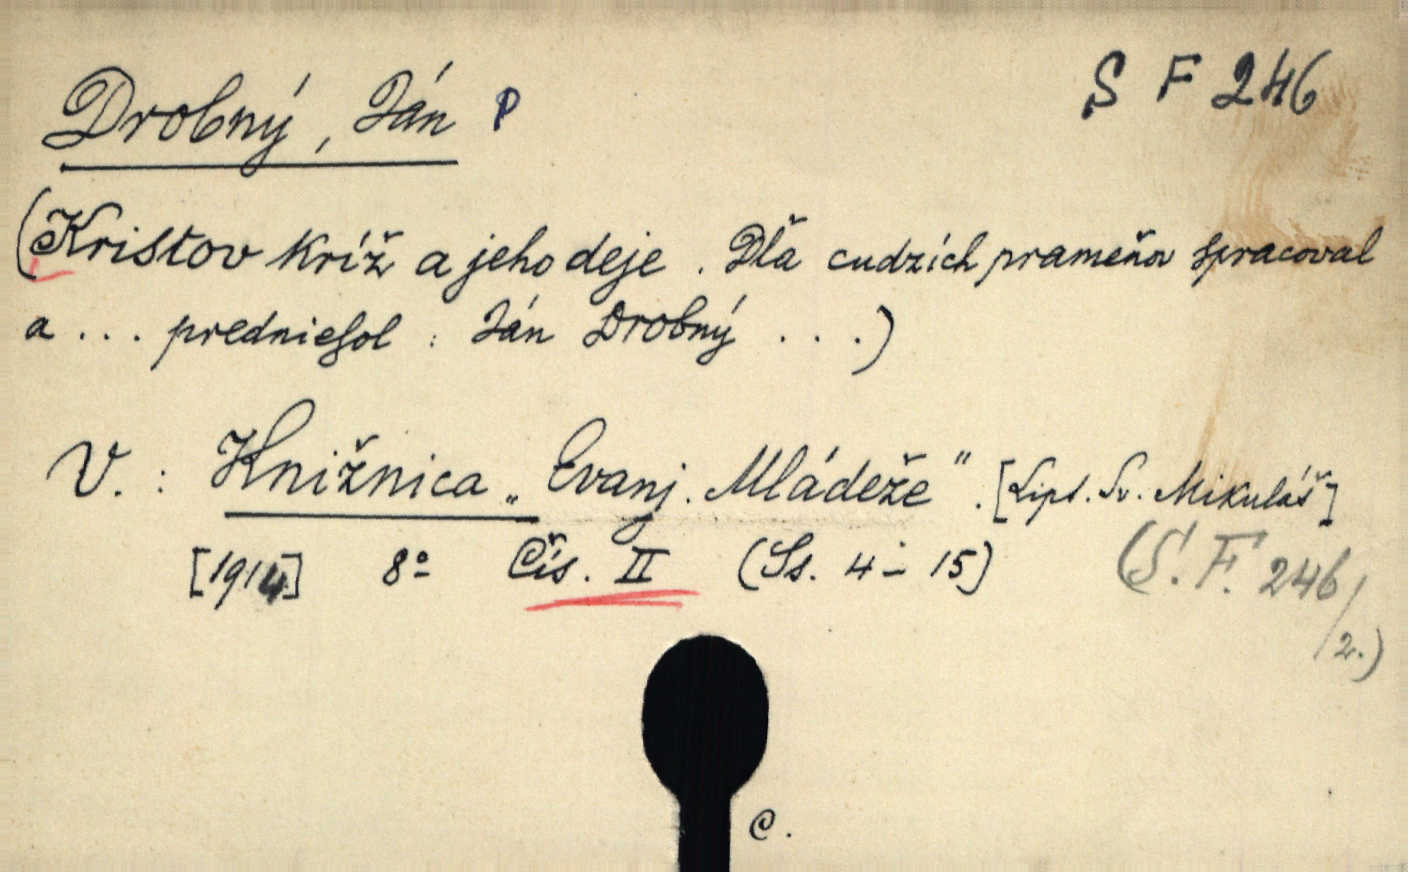 Drobný, Ján P S F 246
(Kristov kríž a jeho deje. Dľa cudzích prameňov spracoval
a ... predniesol: Ján Drobný ...)
V.: Knižnica „Evanj. Mládeže". [Lipt. Sv. Mikuláš]
[1914] 8º Čís. II (Ss. 4 - 15) (S. F. 246/2.)
C.